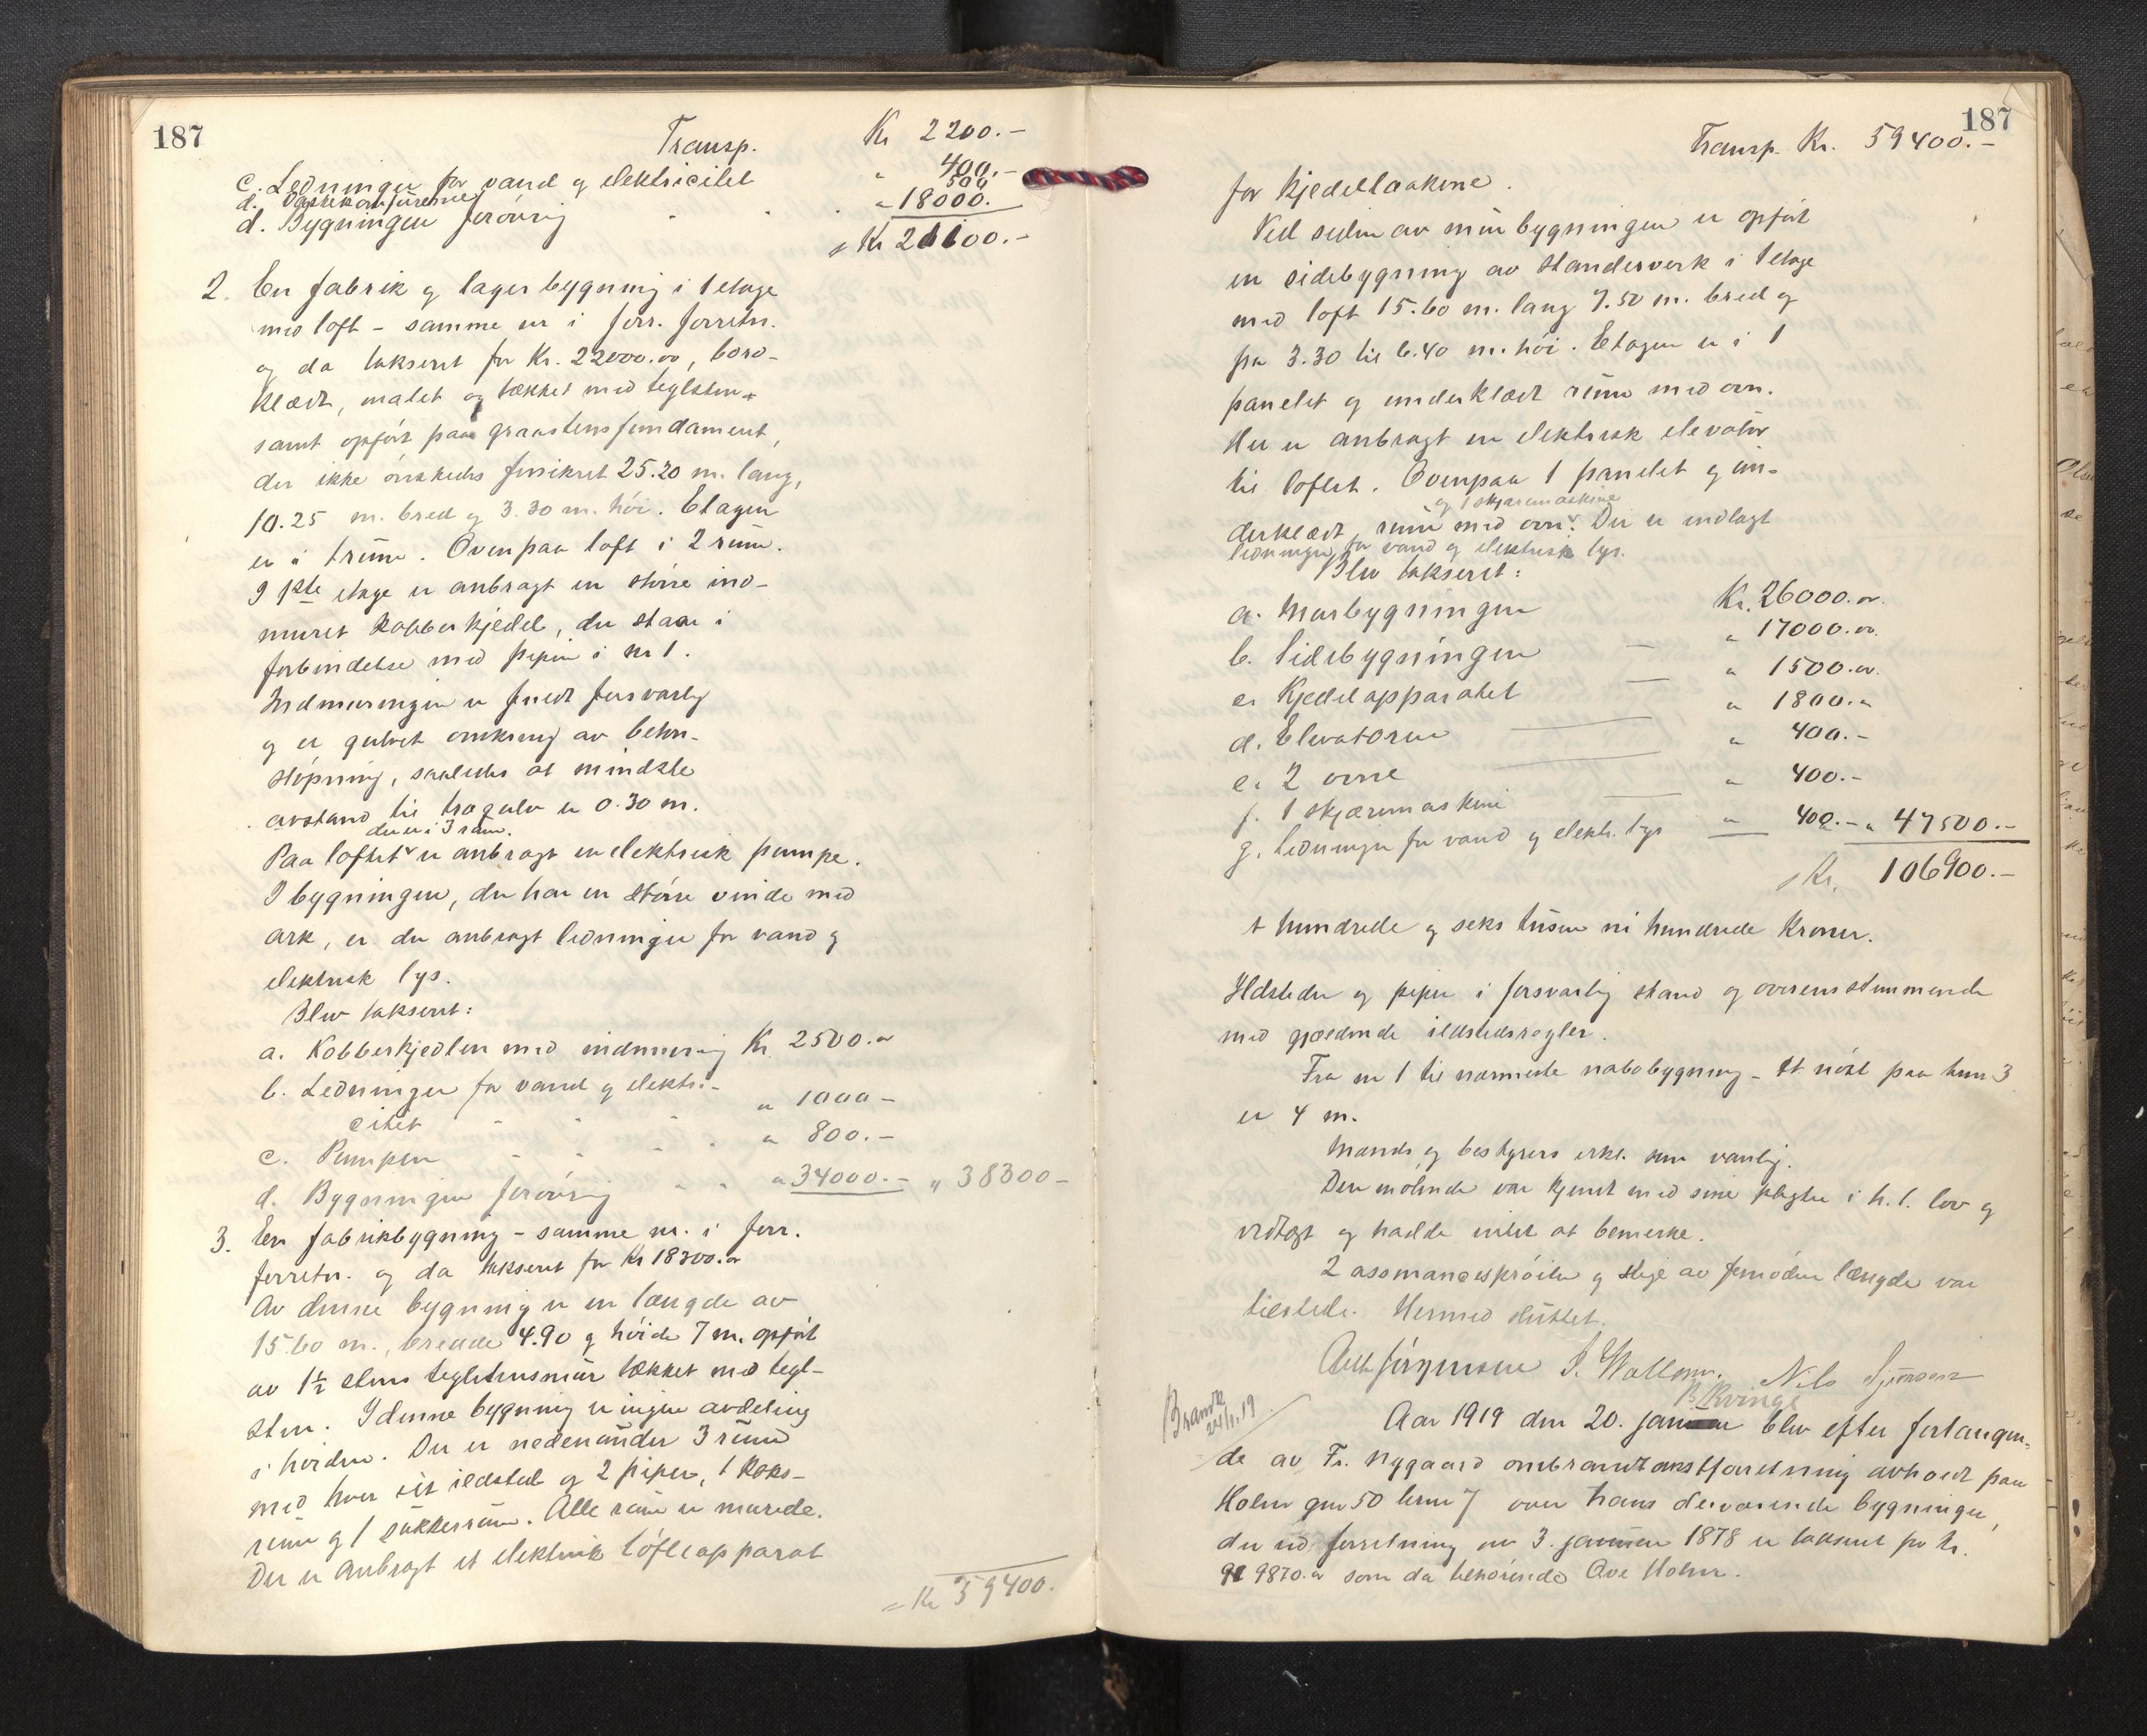 187
Transp. Kr 2200.-
c. Ledninger for vand og elektricitet " 400.-
d. Vaskekomfurerne 500
d. Bygningen forøvrig " 18000.
Kr 21100.-
2. En fabrik og lagerbygning i 1 etage
med loft - samme nr i forr. forretn.
og da takseret for Kr. 22000.00, bord-
klædt, malet og tækket med teglsten
samt opført paa graastensfundament,
der ikke ønskedes forsikret 25.20 m. lang,
10.25 m. bred og 3.30 m. høi. Etagen
er i 1 rum. Ovenpaa loft i 2 rum.
I 1ste etage er anbragt en større ind-
muret kobberkjedel, der staar i
forbindelse med pipen i nr 1.
Indmuringen er fuldt forsvarlig
og er gulvet omkring av beton-
støpning, saaledes at mindste
avstand til trægulv er 0.30 m.
der er i 3 rum.
Paa loftet er anbragt en elektrisk pumpe.
I bygningen, der har en større vinde med
ark, er der anbragt ledninger for vand og
elektrisk lys.
Blev takseret:
a. Kobberkjedlen med indmuring Kr 2500.00
b. Ledninger for vand og elektri-
citet " 1000-
c. Pumpen " 800.-
d. Bygningen forøvrig " 34000.- " 38300-
3. En fabrikbygning - samme nr. i forr.
forretn. og da takseret for Kr 18300.00
Av denne bygning er en længde av
15.60 m., bredde 4.90 og høide 7 m. opført
av 1½ stens teglstensmur tækket med tegl-
sten. I denne bygning er ingen avdeling
i høiden. Der er nedenunder 3 rum
med hver sit ildsted og 2 piper, 1 koks-
rum og 1 sukkerrum. Alle rum er murede.
Der er anbragt et elektrisk løfteapparat
= Kr 59400.
187
Transp. Kr. 59400.-
for kjedellaakene.
Ved siden av murbygningen er opført
en sidebygning av standerverk i 1 etage
med loft 15.60 m. lang 7.50 m. bred og
fra 3.30 til 6.40 m. høi. Etagen er i 1
panelet og underklædt rum med ovn.
Her er anbragt en elektrisk elevator
til loftet. Ovenpaa 1 panelet og un-
og 1 skjæremaskine
derklædt rum med ovn. Der er indlagt
ledninger for vand og elektrisk lys.
Blev takseret:
a. Murbygningen Kr. 26000.00.
b. Sidebygningen " 17000.00.
c. Kjedelapparatet " 1500.00.
d. Elevatoren " 1800.00
e. 2 ovne " 400.-
f. 1 skjæremaskine " 400.-
g. Ledninger for vand og elektr. lys " 400.- " 47500.-
Kr. 106900.-
1 hundrede og seks tusen ni hundrede Kroner.
Ildsteder og piper i forsvarlig stand og overensstemmende
med gjældende ildstedsregler.
Fra nr 1 til nærmeste nabobygning - et nøst paa brnr 3
er 4 m.
Mands og bestyrers erkl. som vanlig.
Den møtende var kjendt med sine pligter i h. t. lov og
vedtægt og hadde intet at bemerke.
2 assuranceprøiter og stige av fornøden længde var
tilstede. Hermed sluttet.
Nils
B. Kvinge
Brandk. 24/1.19
Aar 1919 den 20. januar blev efter forlangen-
de av Fr. Nygaard ombrandtakstforretning avholdt paa
Holmen gnr 50 brnr 7 over hans derværende bygninger,
der ved forretning av 3. januar 1878 er takseret for Kr.
9870.00 som da tilhørende Ove Holm.